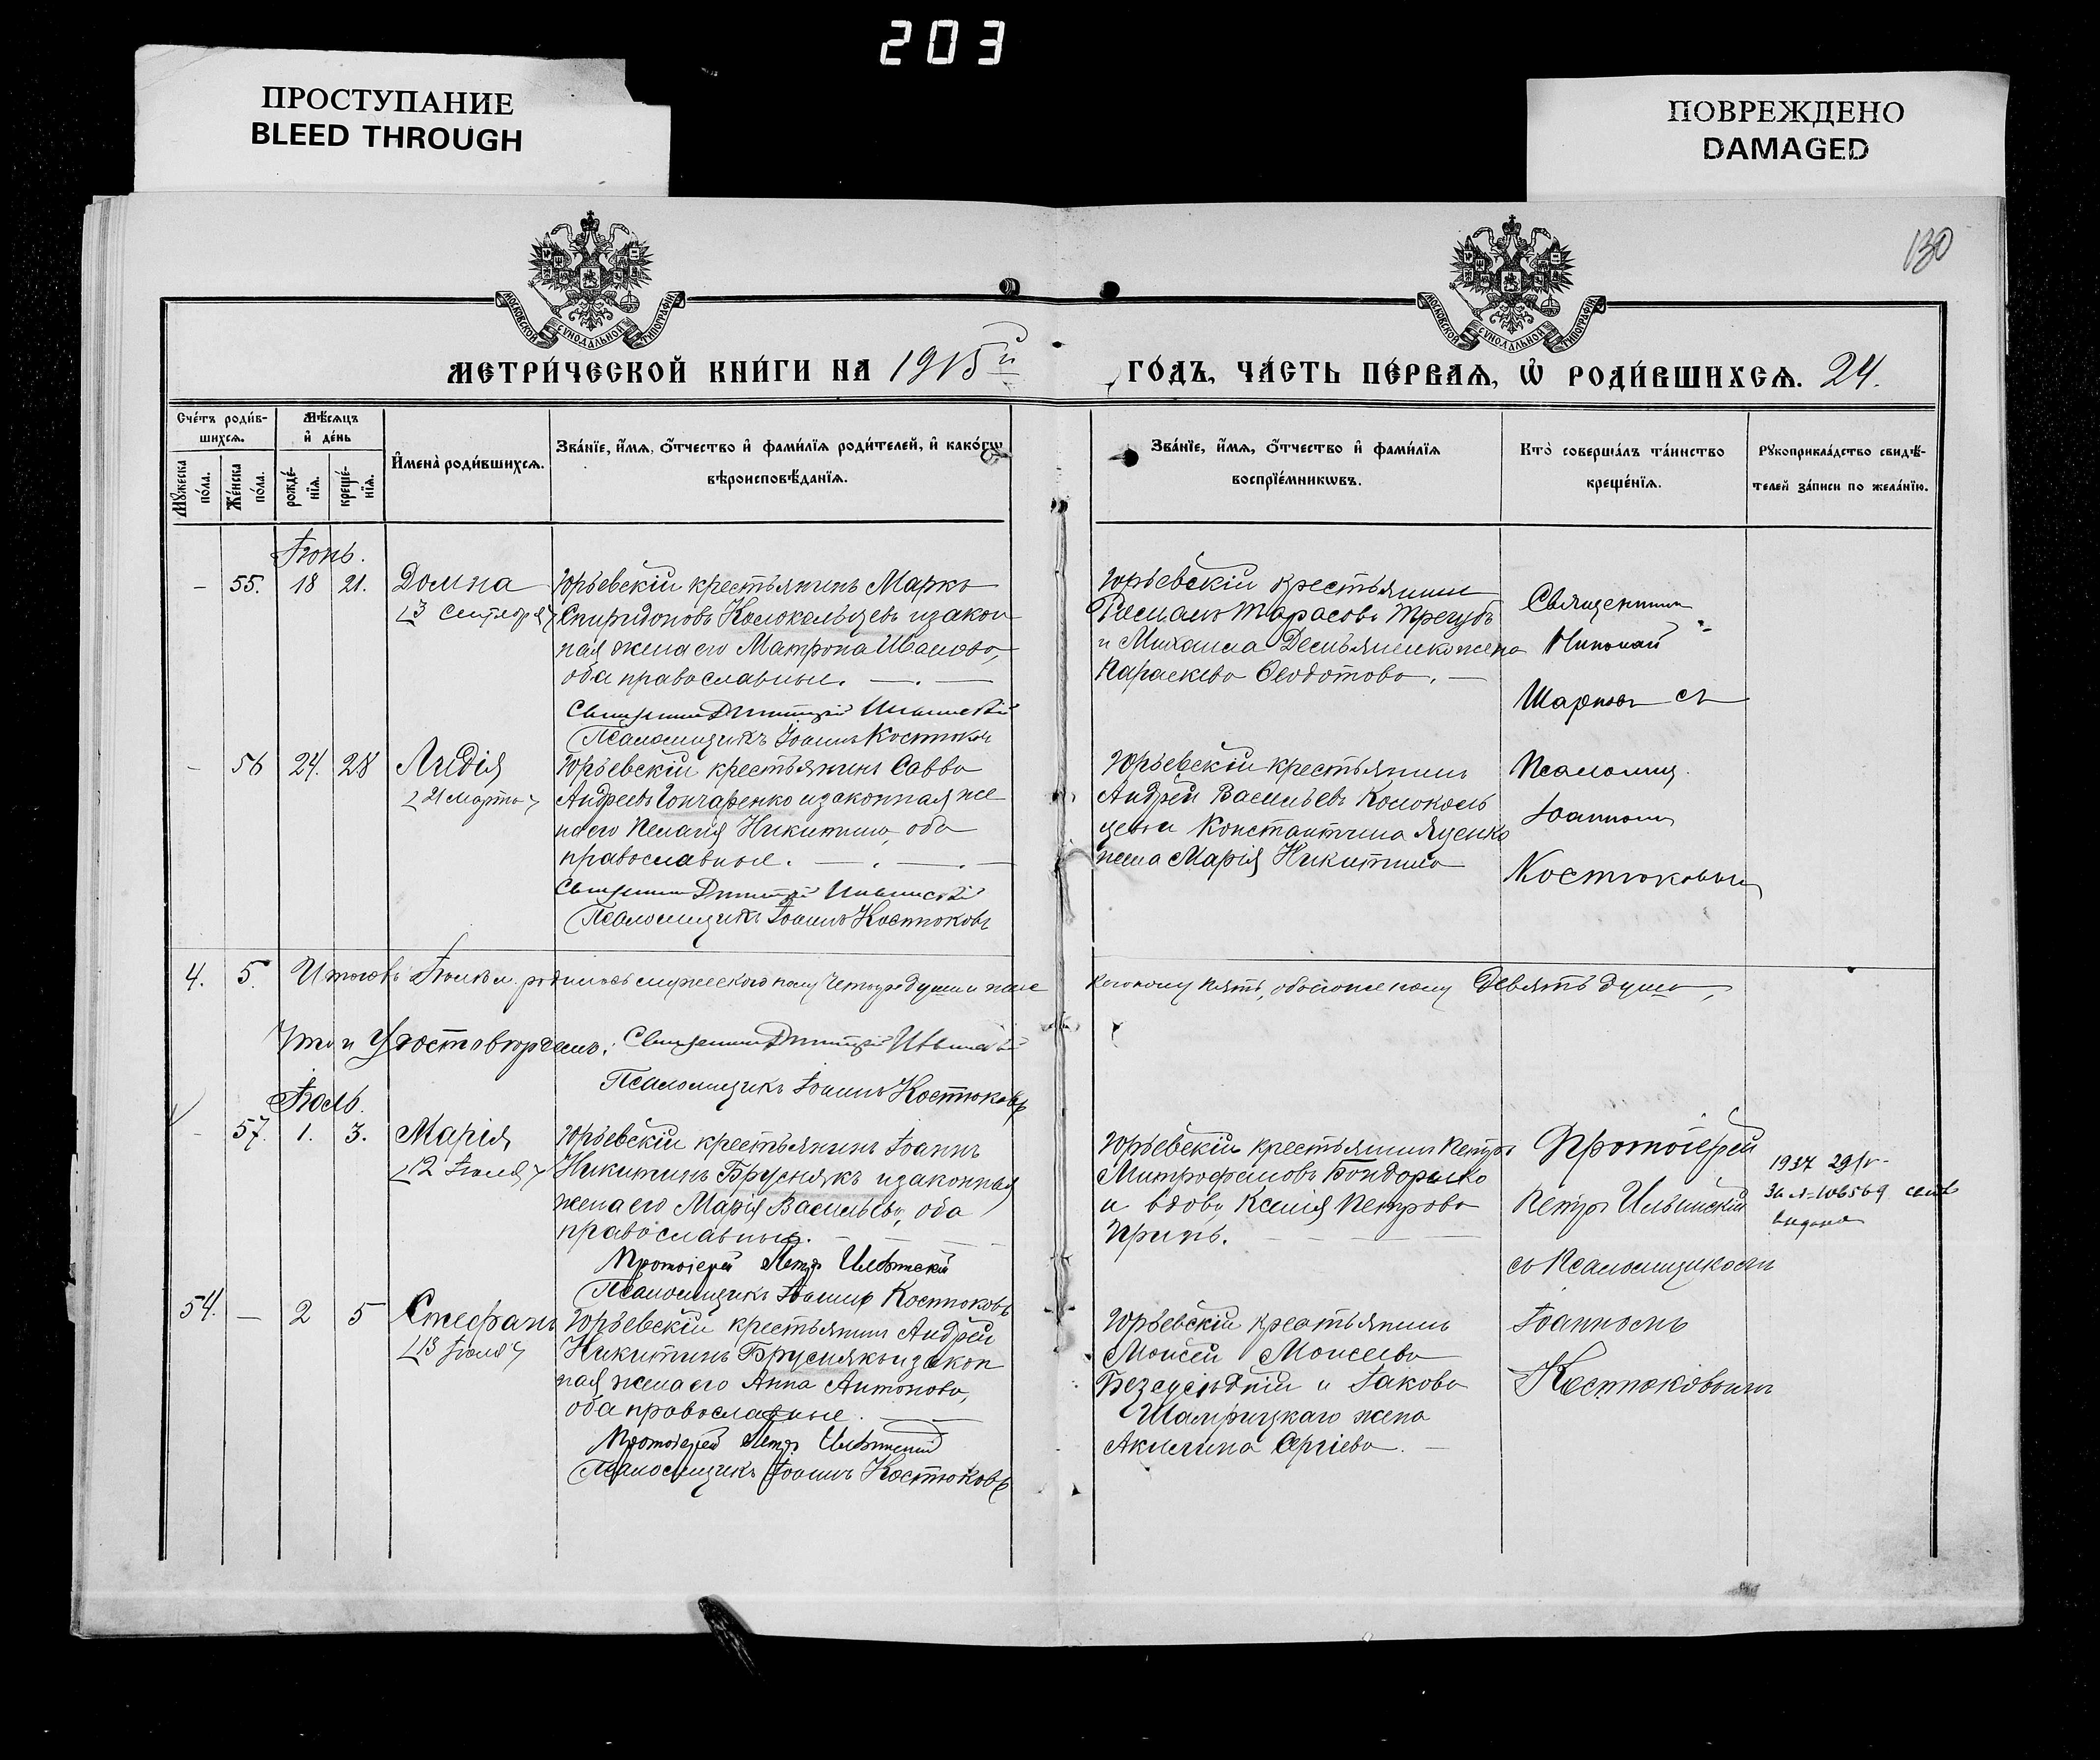 203
ПРОСТУПАНИЕ
BLEED THROUGH
ПОВРЕЖДЕНО
DAMAGED
130
МОСКОВСКОЙ СѴНОДАЛЬНОЙ ТИПОГРАФІИ
МОСКОВСКОЙ СѴНОДАЛЬНОЙ ТИПОГРАФІИ
МЕТРИ́ЧЕСКОЙ КНИ́ГИ НА 1915й ГО́ДЪ, ЧА́СТЬ ПЕ́РВАЯ, Ѡ҆ РОДИ́ВШИХСЯ. 24.
Сче́тъ роди́в-
шихся.
Мѣ́сяцъ
и҆ де́нь
Мꙋ́жеска по́ла.
Же́нска по́ла.
рожде́-
нїя.
креще́-
нїя.
И҆мена̀ роди́вшихся.
Зва́нїе, и҆́мя, о҆́тчество и҆ фами́лїя роди́телей, и҆ како́гѡ
вѣроисповѣ́данїя.
Зва́нїе, и҆́мя, о҆́тчество и҆ фами́лїя
воспрїе́мникѡвъ.
Кто̀ соверша́лъ та́инство
креще́нїя.
Рꙋкоприкла́дство свидѣ́-
телей за́писи по жела́нїю.
Іюнь.
- 55. 18 21. Домна
3 Сентября
Юрьевскій крестьянинъ Марко
Спиридоновъ Колокольцевъ и закон
ная жена его Матрона Иванова,
оба православные.
Псаломщикъ Іоаннъ Костюковъ
Юрьевскій крестьянинъ
Тарасовъ Трегубъ
и Михаила Демьяненко жена
Параскева Ѳеодотова.
Священник
Николай
- 56 24. 28 Лидія
21 Марта
Юрьевскій крестьянинъ Савва
Андреевъ Гончаренко и законная же
на его Пелагія Никитина, оба
православные.
Священникъ Димитрій
Псаломщикъ Іоаннъ Костюковъ
Юрьевскій крестьянинъ
Андрей Васильевъ Колоколь
цевъ и Константина Яценко
жена Марія Никитина
Псаломщ.
Іоанном
Костюковым
4. 5. Итого въ Іюнѣ м. родилось мужескаго полу четыре души и жен
скаго полу пять, обоего же полу Девять душъ,
Что и удостовѣряемъ: Священникъ Димитрій
Псаломщикъ Іоаннъ Костюковъ
Іюль.
- 57. 1. 3. Марія
12 Іюля
Юрьевскій крестьянинъ Іоаннъ
Никитинъ Бруснякъ и законная
жена его Марія Васильева, оба
православные.
Протоіерей Петръ Ильинскій
Псаломщикъ Іоаннъ Костюковъ
Юрьевскій крестьянинъ Петръ
Митрофановъ Бондаренко
и вдова Ксенія Петрова
Принь.
Протоіерей
Петръ Ильинскій
со Псаломщикомъ
Іоанномъ
Костюковымъ
1937 29/IV
За № 106569
выдана
54. - 2 5 Стефанъ
13 Іюля
Юрьевскій крестьянинъ Андрей
Никитинъ Бруснякъ и закон
ная жена его Анна Антонова,
оба православные.
Протоіерей Петръ Ильинскій
Псаломщикъ Іоаннъ Костюковъ
Юрьевскій крестьянинъ
Моисей Моисеевъ
и Іакова
жена
Акилина Сергіева.